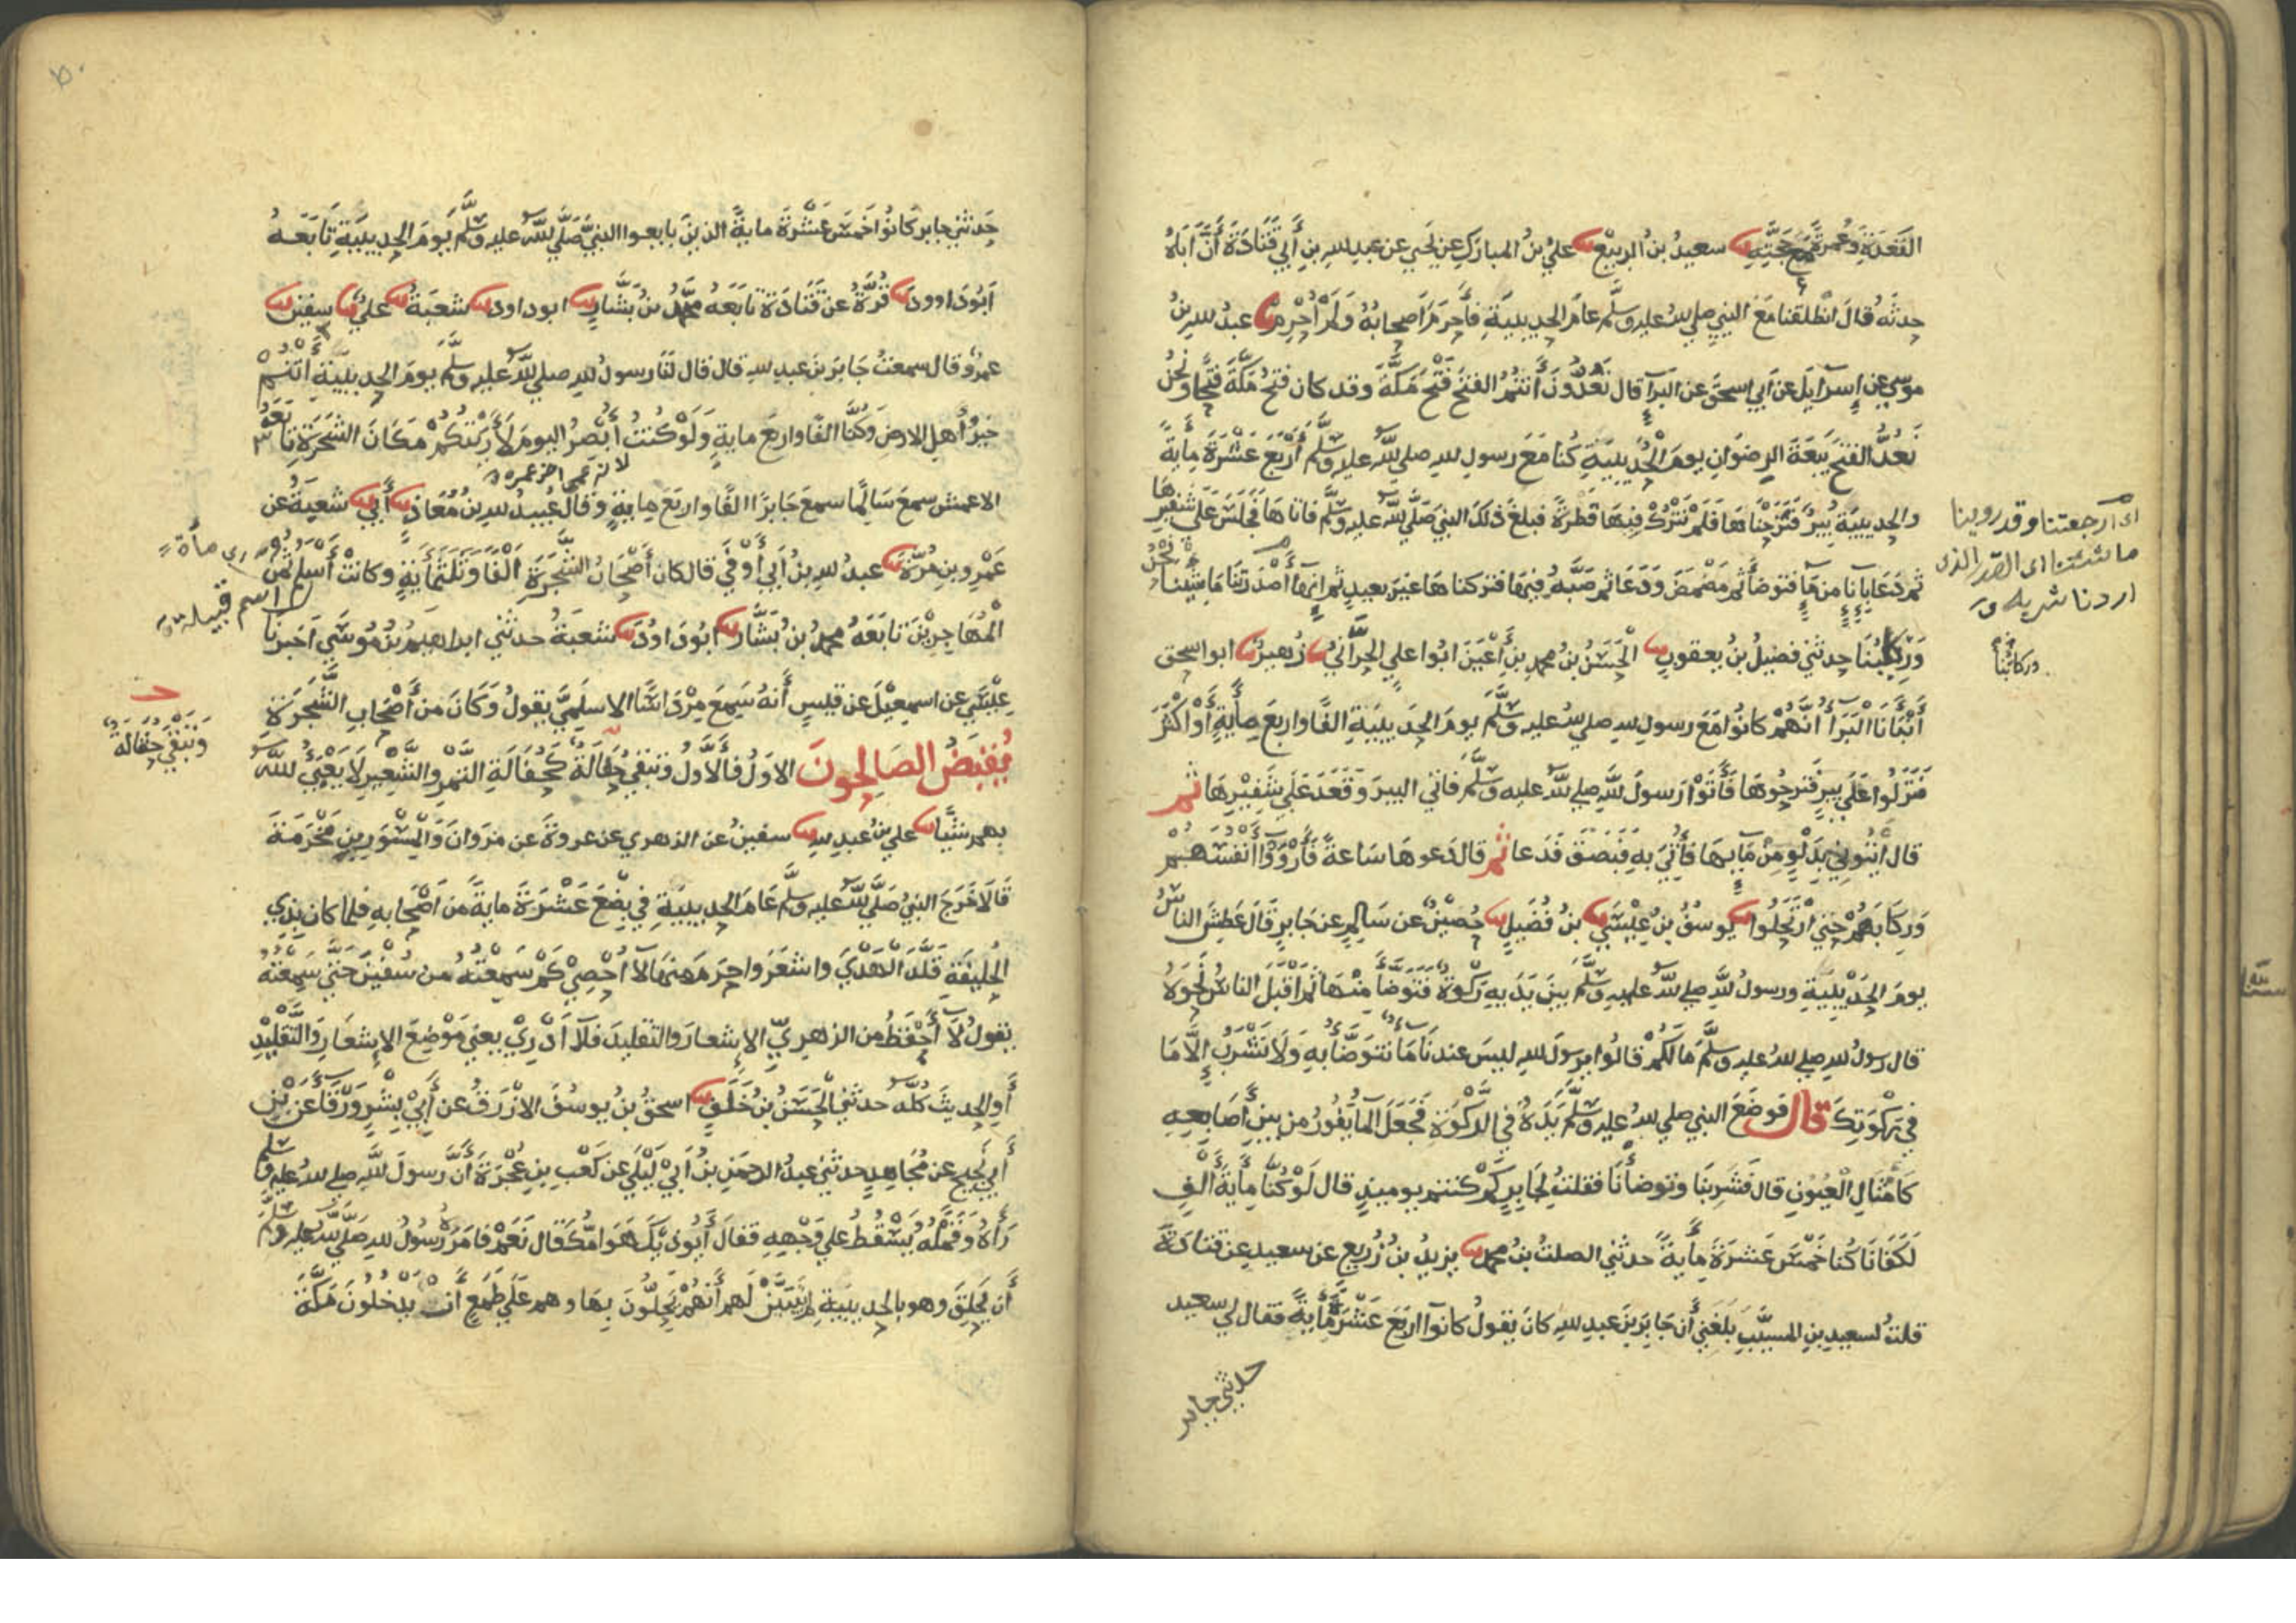 القعدة وعمرة مع حجته نا سعيد بن الربيع نا علي بن المبارك عن يحيى عن عبد الله بن أبي قتادة أن أباه
حدثه قال انطلقنا مع النبي صلى الله عليه وسلم عام الحديبية فأحرم أصحابه ولم أحرم نا عبيد الله بن
موسى عن إسرآيل عن ابي اسحق عن البرآ قال تعدون أنتم الفتح فتح مكة وقد كان فتح مكة فتحا ونحن
نعد الفتح بيعة الرضوان يوم الحديبية كنا مع رسول الله صلى الله عليه وسلم أربع عشرة ماية
والحديبية بير فنزحناها فلم نترك فيها قطرة فبلغ ذلك النبي صلى الله عليه وسلم فاتاها فجلس على شفيرها
ثم دعا بآنا من مآ فتوضأ ثم مضمض ودعا ثم صبه فيها فتركناها غير بعيد ثم إنها أصدرتنا ما شيئنا نحن
وركابنا حدثني فضيل بن يعقوب نا الحسن بن محمد بن أعين ابوا علي الحرآني نا زهير نا ابوا اسحق
أنبأنا البرآ أنهم كانوا مع رسول الله صلى الله عليه وسلم يوم الحديبية الفا واربع مأية أو أكثر
فنزلوا على بير فنزحوها فأتوا رسول الله صلى الله عليه وسلم فاتى البير وقعد على شفيرها ثم
قال ائتوني بدلو من مآيها فأتي به فبصق فدعا ثم قال دعوها ساعة فأرووا أنفسهم
وركابهم حتى ارتحلوا نا يوسف بن عيسى نا بن فضيل نا حصين عن سالم عن جابر قال عطش الناس
يوم الحديبية ورسول الله صلى الله عليه وسلم بين يديه ركوة فتوضأ منها ثم اقبل الناس نحوه
قال رسول الله صلى الله عليه وسلم ما لكم قالوا يرسول الله ليس عندنا ما نتوضأ به ولا نشرب إلا ما
في ركوتك قال فوضع النبي صلى الله عليه وسلم يده في الركوة فجعل المآ يفور من بين أصابعه
كأمثال العيون قال فشربنا وتوضأنا فقلت لجابر كم كنتم يوميذ قال لو كنا مأية ألف
لكفانا كنا خمس عشرة مأية حدثني الصلت بن محمد نا يزيد بن زريع عن سعيد عن قتادة
قلت لسعيد بن المسيب بلغني أن جابر بن عبد الله كان يقول كانوا اربع عشرة مأية فقال لي سعيد
حدثني جابر
اى ارجعتنا وقد روينا
ما شئنا اى القدر الذى
اردنا شربه
وركابنا
حدثني جابر كانوا خمس عشرة ماية الذين بايعوا النبي صلى الله عليه وسلم يوم الحديبية تابعه
ابو داوود نا قرة عن قتادة تابعه محمد بن بشار نا ابو داود نا شعبة نا علي نا سفين نا
عمرو قال سمعت جابر بن عبد الله قال قال لنا رسول الله صلى الله عليه وسلم يوم الحديبية أنتم
خير أهل الارض وكنا الفا واربع ماية ولو كنت أبصر اليوم لأريتكم مكان الشجرة تابعه
لانه عمى اخر عمره
الاعمش سمع سالما سمع جابرا الفا واربع ماية وقال عبيد الله بن معاذ نا أبي نا شعبة عن
عمرو بن مرة نا عبد الله بن أبي أوفى قال كان أصحاب الشجرة ألفا وثلثمأية وكانت أسلم ثمن
المهاجرين تابعه محمد بن بشار نا ابو داود نا شعبة حدثني ابراهيم بن موسى اخبرنا
عيسى عن اسمعيل عن قيس أنه سمع مرداسا الاسلمي يقول وكان من أصحاب الشجرة
يقبض الصالحون الاول فالأول وتبقى حفالة كحفالة التمر والشعير لا يعبى الله
بهم شيا نا علي بن عبد الله نا سفين عن الزهري عن عروة عن مروان والمسور بن مخرمة
قالا خرج النبي صلى الله عليه وسلم عام الحديبية في بضع عشرة ماية من أصحابه فلما كان بذي
الحليفة قلد الهدي واشعر واحرم منها لا أحصي كم سمعته من سفين حتى سمعته
يقول لا أحفظ من الزهري الإشعار والتقليد فلا أدري يعني موضع الإشعار والتقليد
أو الحديث كله حدثني الحسن بن خلف نا اسحق بن يوسف الازرق عن أبي بشر ورقا عن بن
أبي نجيح عن مجاهد حدثني عبد الرحمن بن أبي ليلى عن كعب بن عجرة أن رسول الله صلى الله عليه وسلم
رآه وقمله يسقط على وجهه فقال أيوذيك هوامك قال نعم فامره رسول الله صلى الله عليه وسلم
أن يحلق وهو بالحديبية لم يتبين لهم أنهم يحلون بها وهم على طمع أن يدخلون مكة
اى مأة
اسم قبيلة
وتبقى حفالة